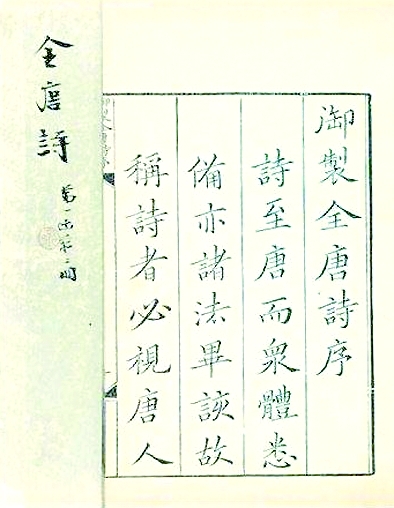 御製全唐詩序
詩至唐而衆體悉
備亦諸法畢該故
稱詩者必視唐人
全唐詩
第一函第一冊